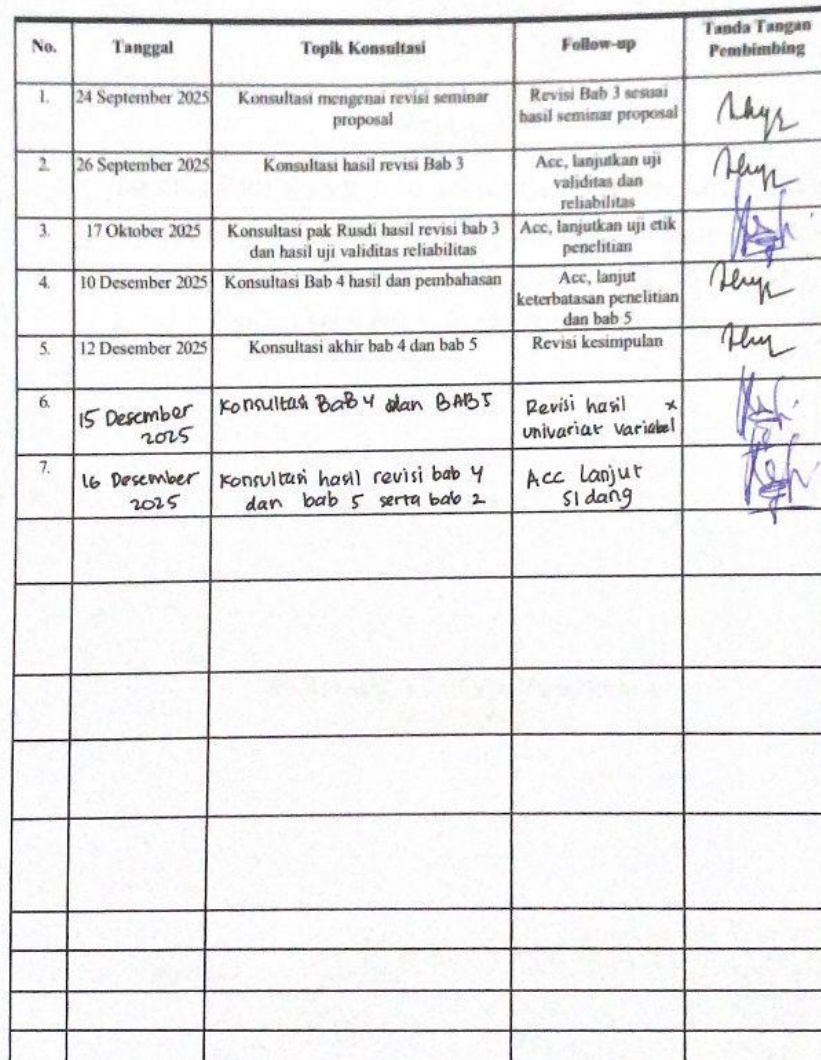 No. Tanggal Topik Konsultasi Follow-up Tanda Tangan
Pembimbing
1. 24 September 2025 Konsultasi mengenai revisi seminar Revisi Bab 3 sesuai
proposal hasil seminar proposal
2. 26 September 2025 Konsultasi hasil revisi Bab 3 Acc, lanjutkan uji
validitas dan
reliabilitas
3. 17 Oktober 2025 Konsultasi pak Rusdi hasil revisi bab 3 Acc, lanjutkan uji etik
dan hasil uji validitas reliabilitas penelitian
4. 10 Desember 2025 Konsultasi Bab 4 hasil dan pembahasan Acc, lanjut
keterbatasan penelitian
dan bab 5
5. 12 Desember 2025 Konsultasi akhir bab 4 dan bab 5 Revisi kesimpulan
6. 15 Desember Konsultasi BaB 4 dan BAB 5 Revisi hasil x
2025 univariat variabel
7. 16 Desember Konsultasi hasil revisi bab 4 Acc Lanjut
2025 dan bab 5 serta bab 2 Sidang